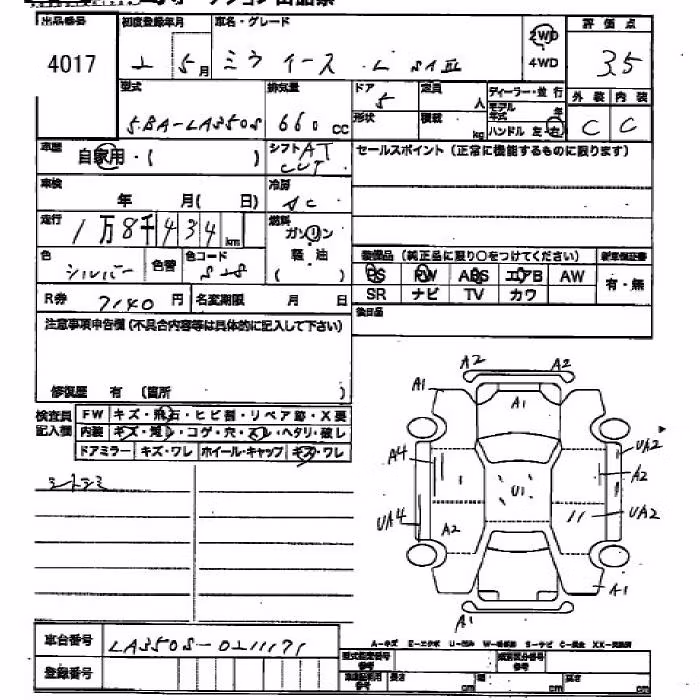 出品番号 初度登録年月 車名・グレード 2WD 評価点
4017 2 5月 ミライース L SAⅢ 4WD 3.5
型式 排気量 ドア 定員 ディーラー・並行 外装 内装
5BA-LA350S 660cc 5 人 モデル年式 年 C C
形状 積載 kg ハンドル 左・右
車歴 自家用・( ) シフト AT CVT セールスポイント (正常に機能するものに限ります)
車検 年 月( 日) 冷房 AC
走行 1万8千434km 燃料 ガソリン
色 シルバー 色替 色コード S28 軽油 ( )
装備品 (純正品に限り○をつけてください) 新車保証書
PS PW ABS エアB AW 有・無
R券 7140円 名変期限 月 日 SR ナビ TV カワ
後日品
注意事項申告欄 (不具合内容等は具体的に記入して下さい)
修復歴 有 (箇所 )
検査員記入欄 FW キズ・飛石・ヒビ割・リペア跡・X要
内装 キズ・汚レ・コゲ・穴・スレ・ヘタリ・破レ
ドアミラー キズ・ワレ ホイール・キャップ キズ・ワレ
シートシミ
A2 A2
A1 A1
A4 UA2
A2
U1
UA4 A2 UA2
A1
A1
車台番号 LA350S-0211171
登録番号
A-キズ E-エクボ U-凹み S-サビ C-腐食
型式指定番号 類別区分番号
長さ cm 幅 cm 高さ cm